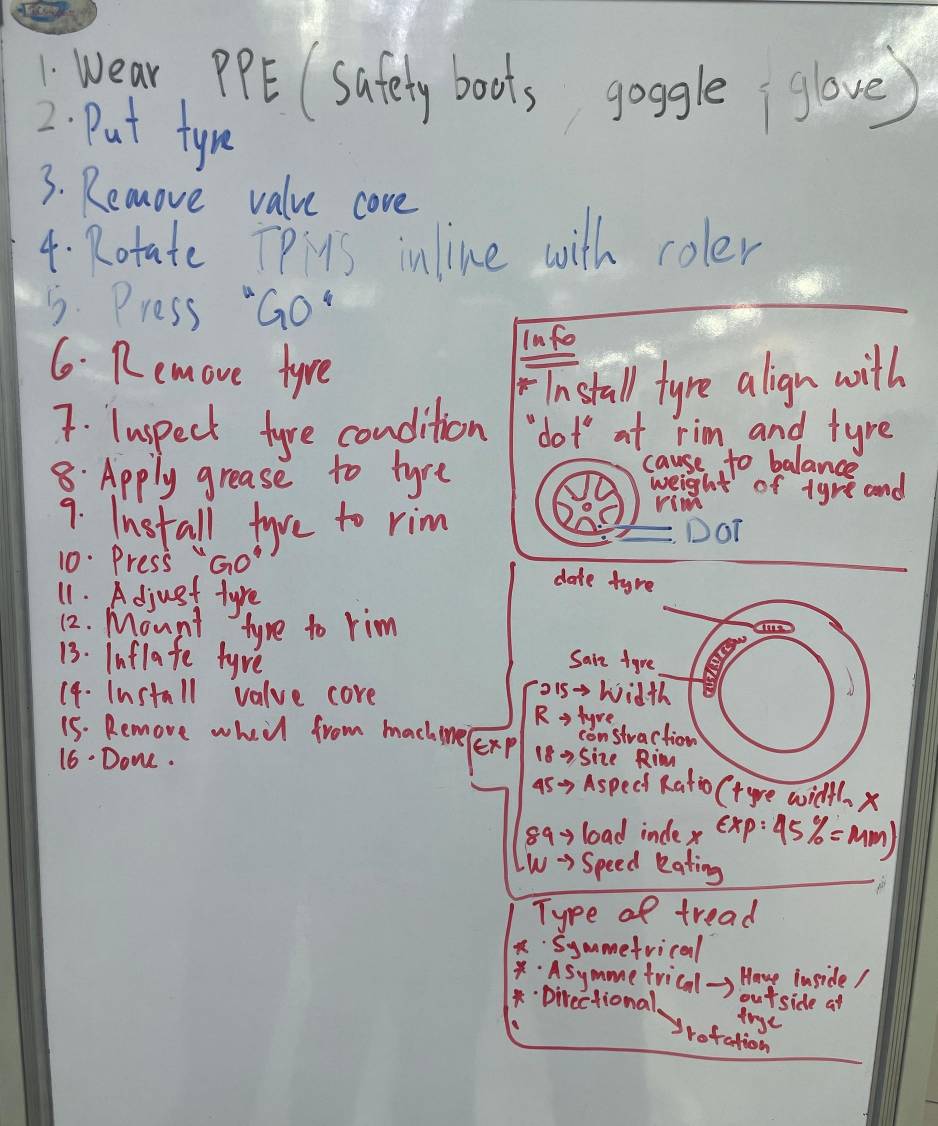 1. Wear PPE (Safety boots, goggle & glove)
2. Put tyre
3. Remove valve core
4. Rotate TPMS inline with roler
5. Press "GO"
6. Remove tyre
7. Inspect tyre condition
8. Apply grease to tyre
9. Install tyre to rim
10. Press "GO"
11. Adjust tyre
12. Mount tyre to rim
13. Inflate tyre
14. Install valve core
15. Remove wheel from machine
16. Done.
Info
* Install tyre align with
"dot" at rim and tyre
cause to balance
weight of tyre and
rim
DOT
date tyre
Saiz tyre
Exp
215 → Width
R → tyre
constraction
18 → Size Rim
45 → Aspect Ratio (tyre width x
Exp: 45% = mm)
89 → load index
W → Speed Rating
Type of tread
* · Symmetrical
* · Asymmetrical → Have inside/
outside at
tyre
* · Directional
→ rotation